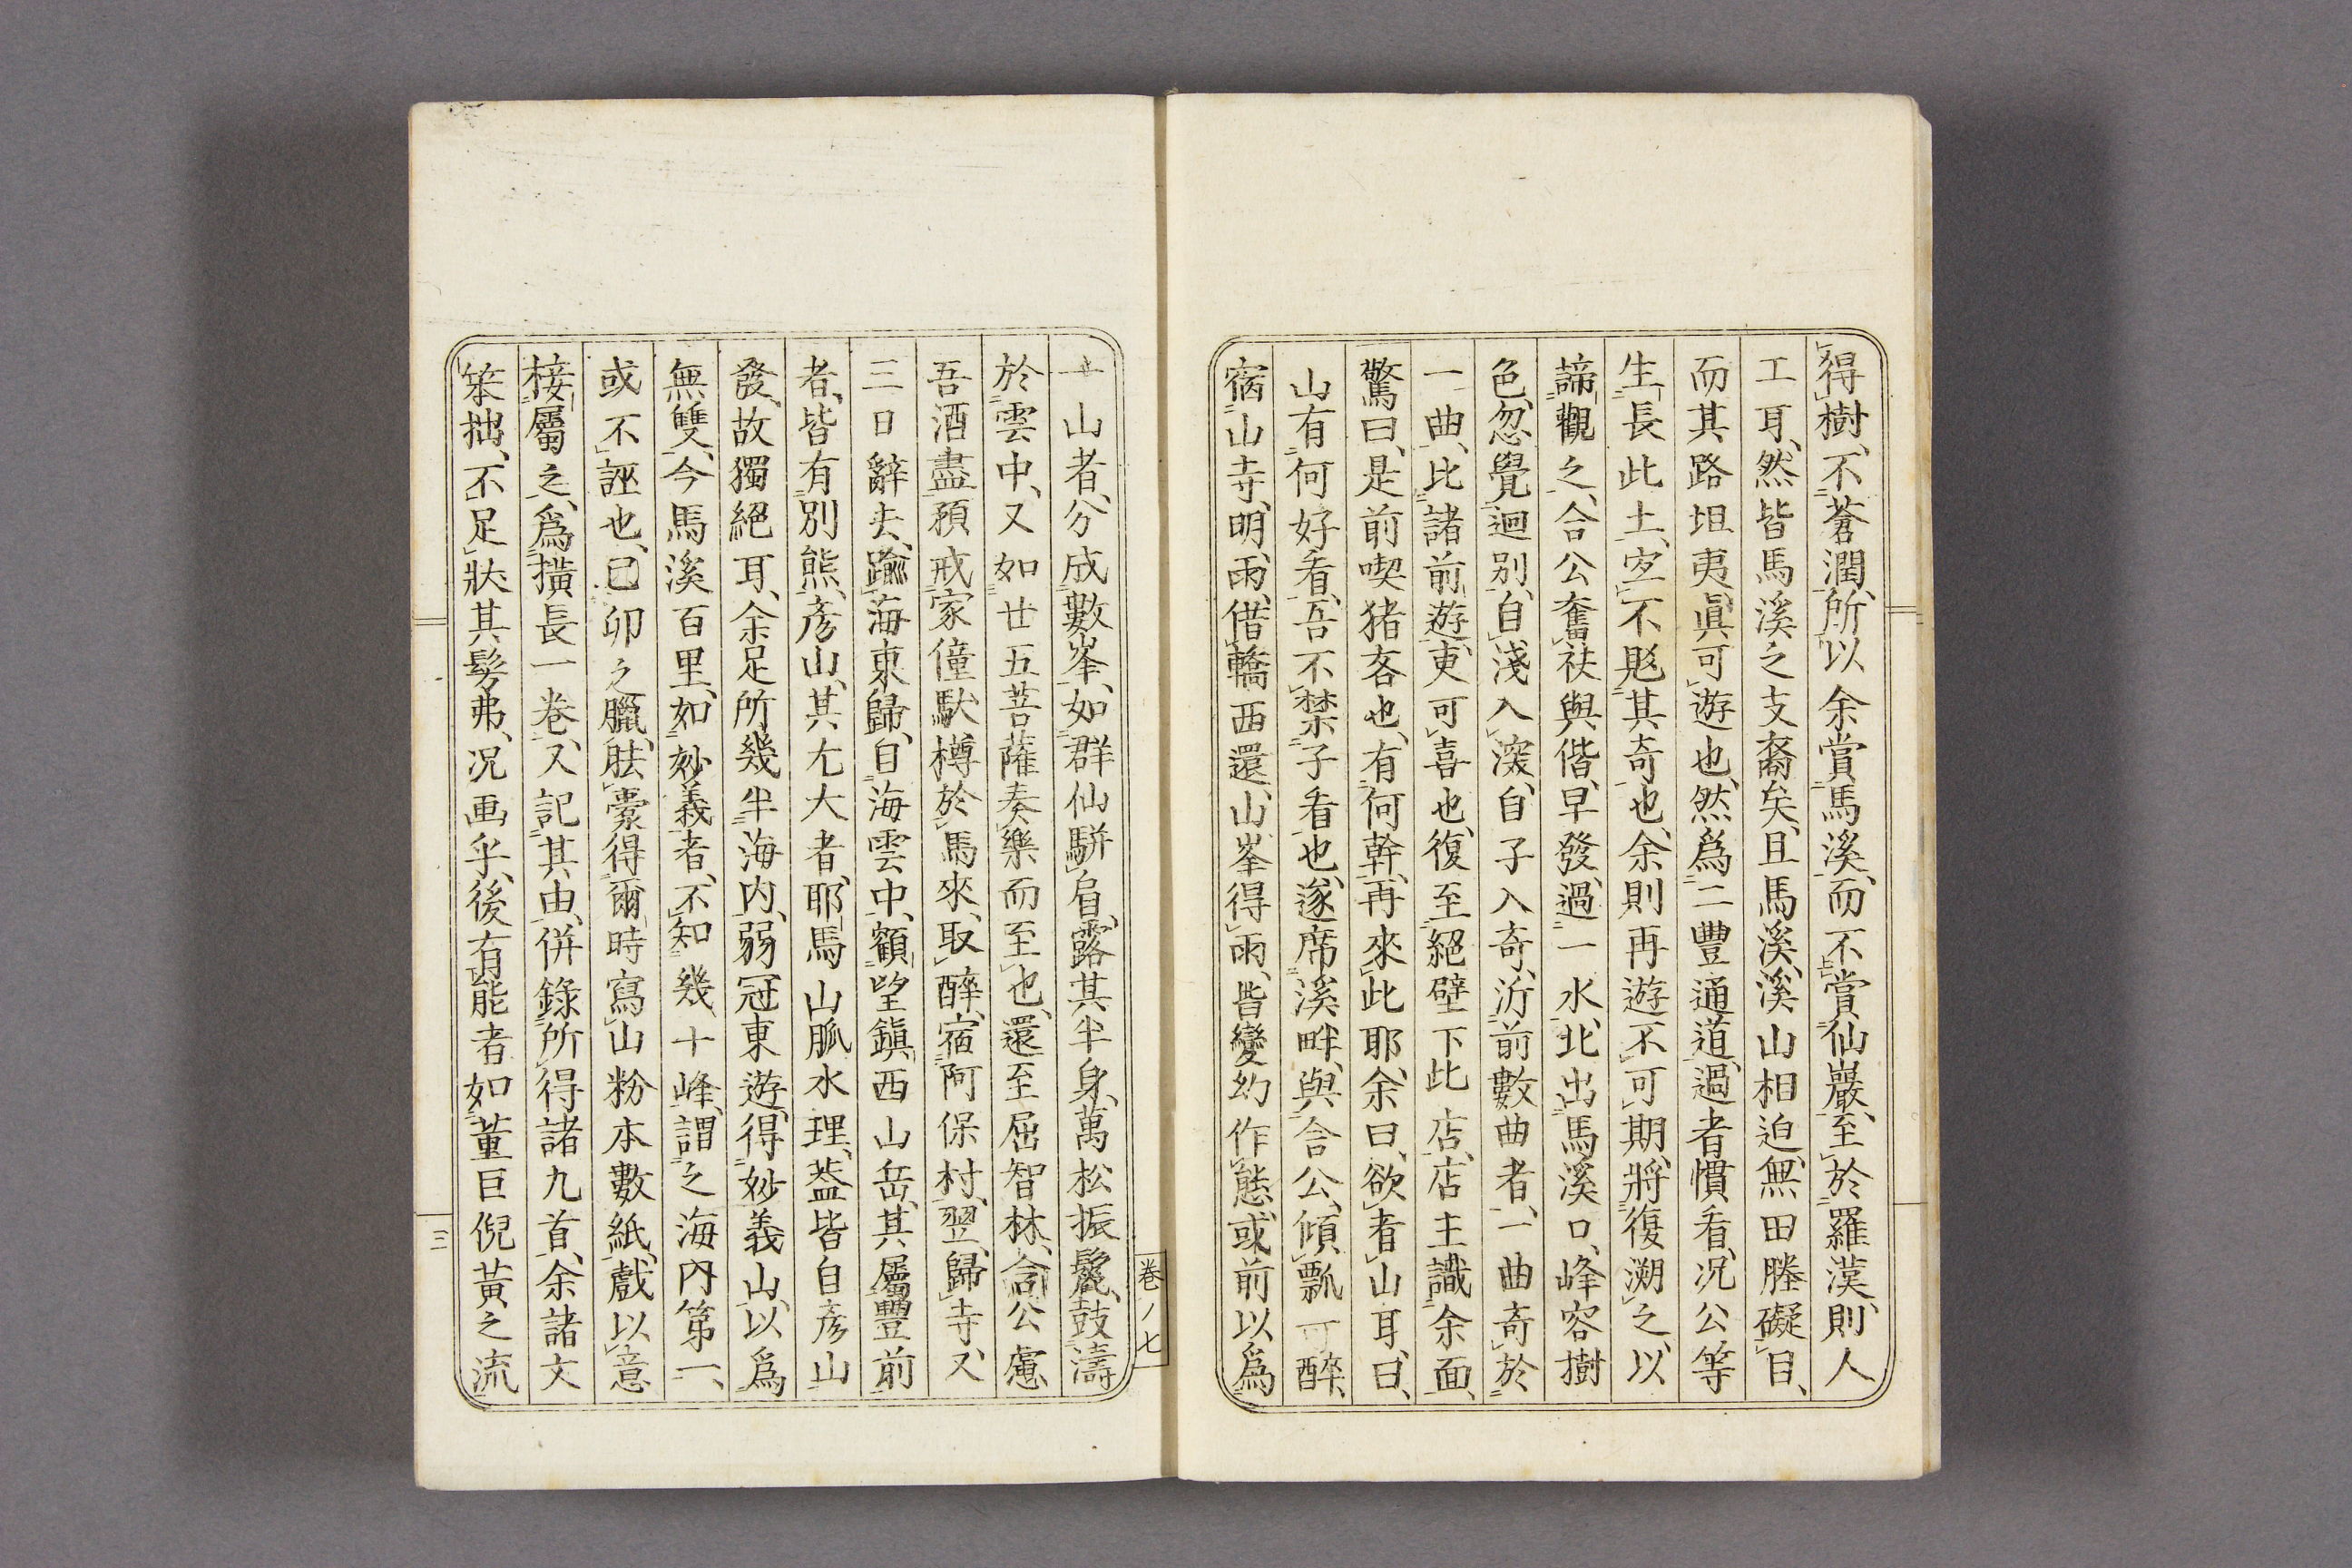 得樹、不蒼潤、所以余賞馬溪、而不賞仙巖、至於羅漢、則人
工耳、然皆馬溪之支裔矣、且馬溪、溪山相迫、無田塍礙目、
而其路坦夷、眞可遊也、然爲二豐通道、過者慣看、況公等
生長此土、宜不覐其奇也、余則再遊不可期、將復溯之、以
諦觀之、含公奮袂與偕、早發、過一水、北出馬溪口、峰容樹
色、忽覺迴別、自淺入深、自子入奇、沂前數曲者、一曲奇於
一曲、比諸前遊、更可喜也、復至絕壁下此店、店主識余面、
驚曰、是前喫猪客也、有何幹、再來此耶、余曰、欲看山耳、曰、
山有何好看、吾不禁子看也、遂席溪畔、與含公、傾瓢可醉、
宿山寺、明、雨、借轎西還、山峯得雨、皆變約作態、或前以爲
一山者、分成數峯、如群仙駢肩、露其半身、萬松振鬣、鼓濤
於雲中、又如廿五菩薩奏樂而至也、還至屈智林、含公慮
吾酒盡、預戒家僮馱樽於馬來、取醉、宿阿保村、翌、歸寺、又
三日辭去、踰海東歸、自海雲中、顧望鎭西山岳、其屬豐前
者、皆有別態、彥山、其尤大者耶、馬山脈水理、蓋皆自彥山
發、故獨絕耳、余足所幾半海内、弱冠東遊、得妙義山、以爲
無雙、今馬溪百里、如妙義者、不知幾十峰、謂之海内第一、
或不誣也、己卯之臘、胠橐得爾時寫山粉本數紙、戲以意
接屬之、爲橫長一卷、又記其由、併錄所得諸九首、余諸文
笨拙、不足狀其髣弗、況画乎、後有能者如董巨倪黃之流
卷ノ七
三